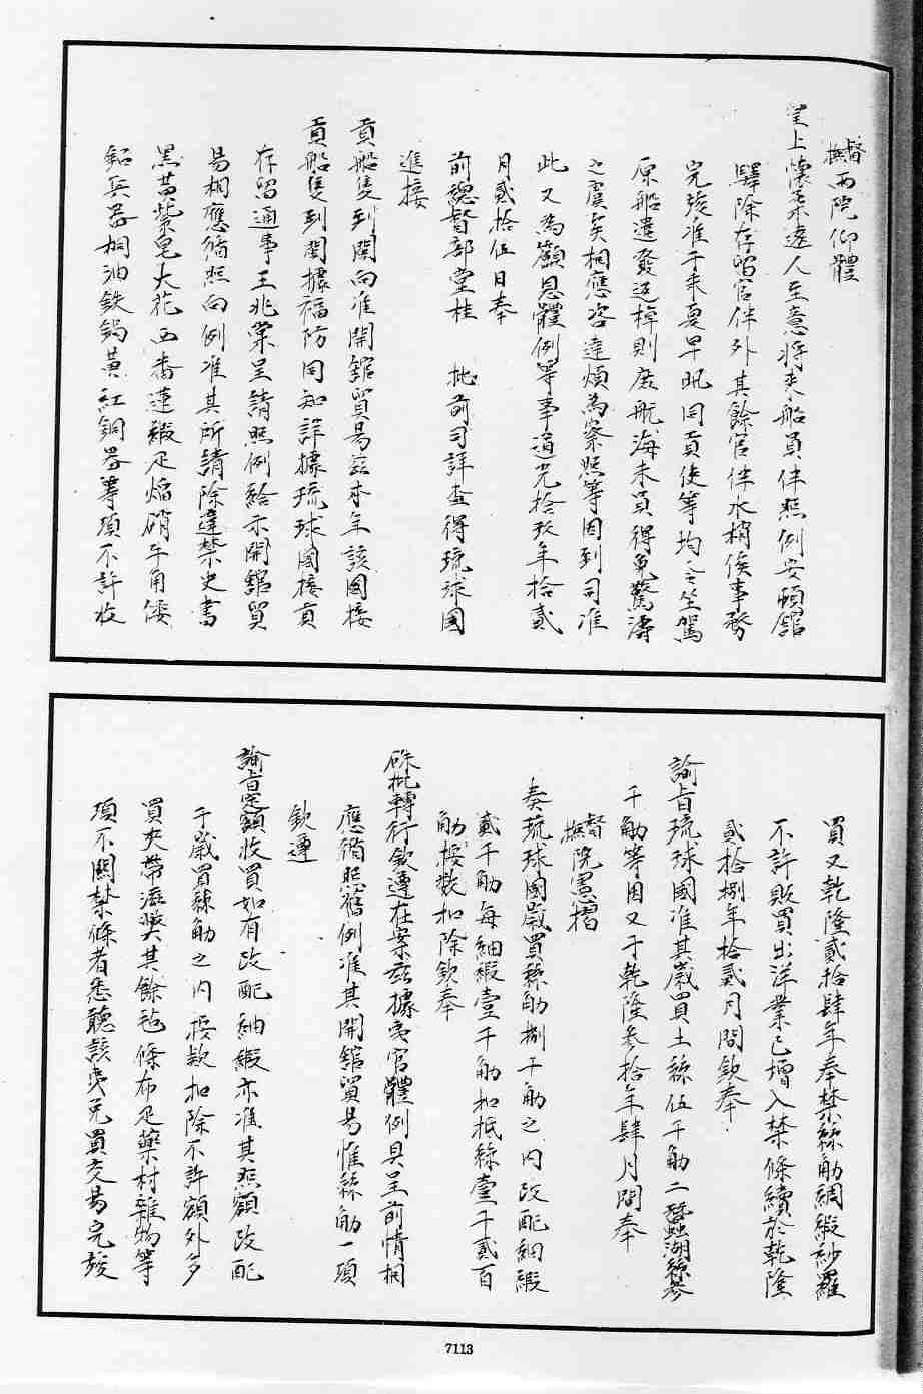 督撫兩院仰體
皇上懷柔遠人至意將夾船員伴照例安頓舘
驛除存留官伴外其餘官伴水梢俟事務
完竣准于来夏早飭同貢使等均令坐駕
原船遣發返棹則庶航海末員得免驚濤
之虞矣相應咨達煩為察照等因到司准
此又為籲恩體例等事道光拾玖年拾貳
月貳拾伍日奉
前總督部堂桂 批前司詳查得琉球國
進接
貢船隻到閩向准開舘貿易兹本年該國接
貢船隻到閩據福防同知詳據琉球國接貢
存留通事王兆棠呈請照例給示開舘貿
易相應循照向例准其所請除違禁史書
黑黃紫皂大花西番蓮緞疋焔硝牛角倭
鉛兵器桐油鉄鍋黃紅銅器等項不許收
買又乾隆貳拾肆年奉禁絲觔綢緞紗羅
不許販買出洋業已增入禁條續於乾隆
貳拾捌年拾貳月間欽奉
諭旨琉球國准其歲買土絲伍千觔二蠶湖絲叄
千觔等因又于乾隆叁拾年肆月間奉
督撫院憲摺
奏琉球國歲買絲觔捌千觔之内改配紬緞
貳千觔每紬緞壹千觔扣抵絲壹千貳百
觔按数扣除欽奉
硃批轉行欽遵在案茲據夷官體例具呈前情相
應循照舊例准其開舘貿易惟絲觔一項
欽遵
諭旨定額收買如有改配紬緞亦准其照額改配
于歲買絲觔之内按款扣除不許額外多
買夾帶滋獘其餘毡條布疋藥材雜物等
項不關禁條者悉聽該夷兑買交易完竣
7113